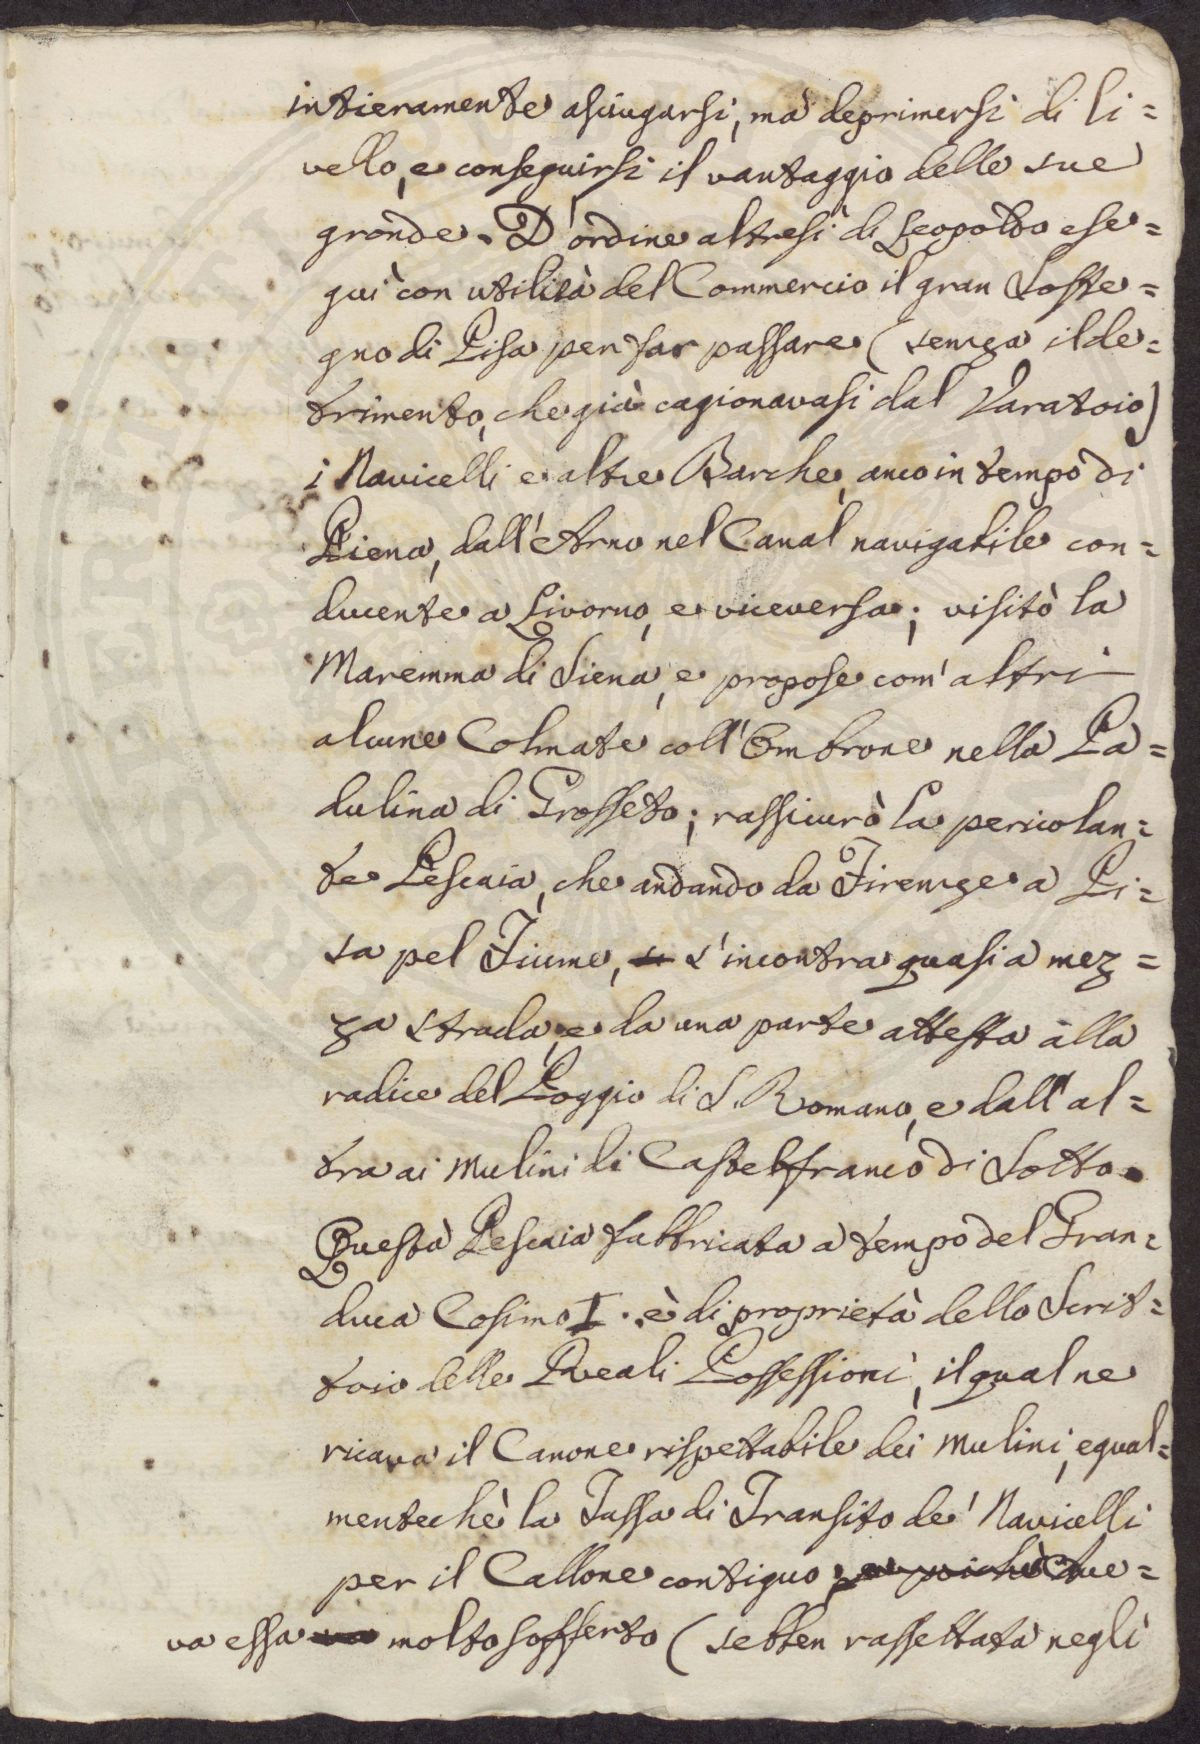 intieramente asciugarsi, mà deprimersi di li=
vello, e conseguirsi il vantaggio delle sue
gronde. D'ordine altresì di Leopoldo ese=
guì con utilità del Commercio il gran Soste=
gno di Pisa per far passare (senza il de=
trimento, che già cagionavasi dal Varatoio)
i Navicelli e altre Barche, anco in tempo di
Piena, dall'Arno nel Canal navigabile con=
ducente a Livorno, e viceversa; visitò la
Maremma di Siena, e propose com'altri
alcune Colmate coll'Ombrone nella Pa=
dulina di Grosseto; rassicurò la pericolan=
te Pescaia, che andando da Firenze a Pi=
sa pel Fiume, s'incontra quasi a mez=
za strada, e da una parte attesta alla
radice del Poggio di S. Romano, e dall'al=
tra ai Mulini di Castelfranco di Sotto.
Questa Pescaia fabbricata a tempo del Gran=
duca Cosimo I. è di proprietà dello Scrit=
toio delle Reali Possessioni, il qual ne
ricava il Canone rispettabile dei Mulini, equal=
mentechè la Tassa di Transito de' Navicelli
per il Callone contiguo
va essa molto sofferto (sebben rassettata negli